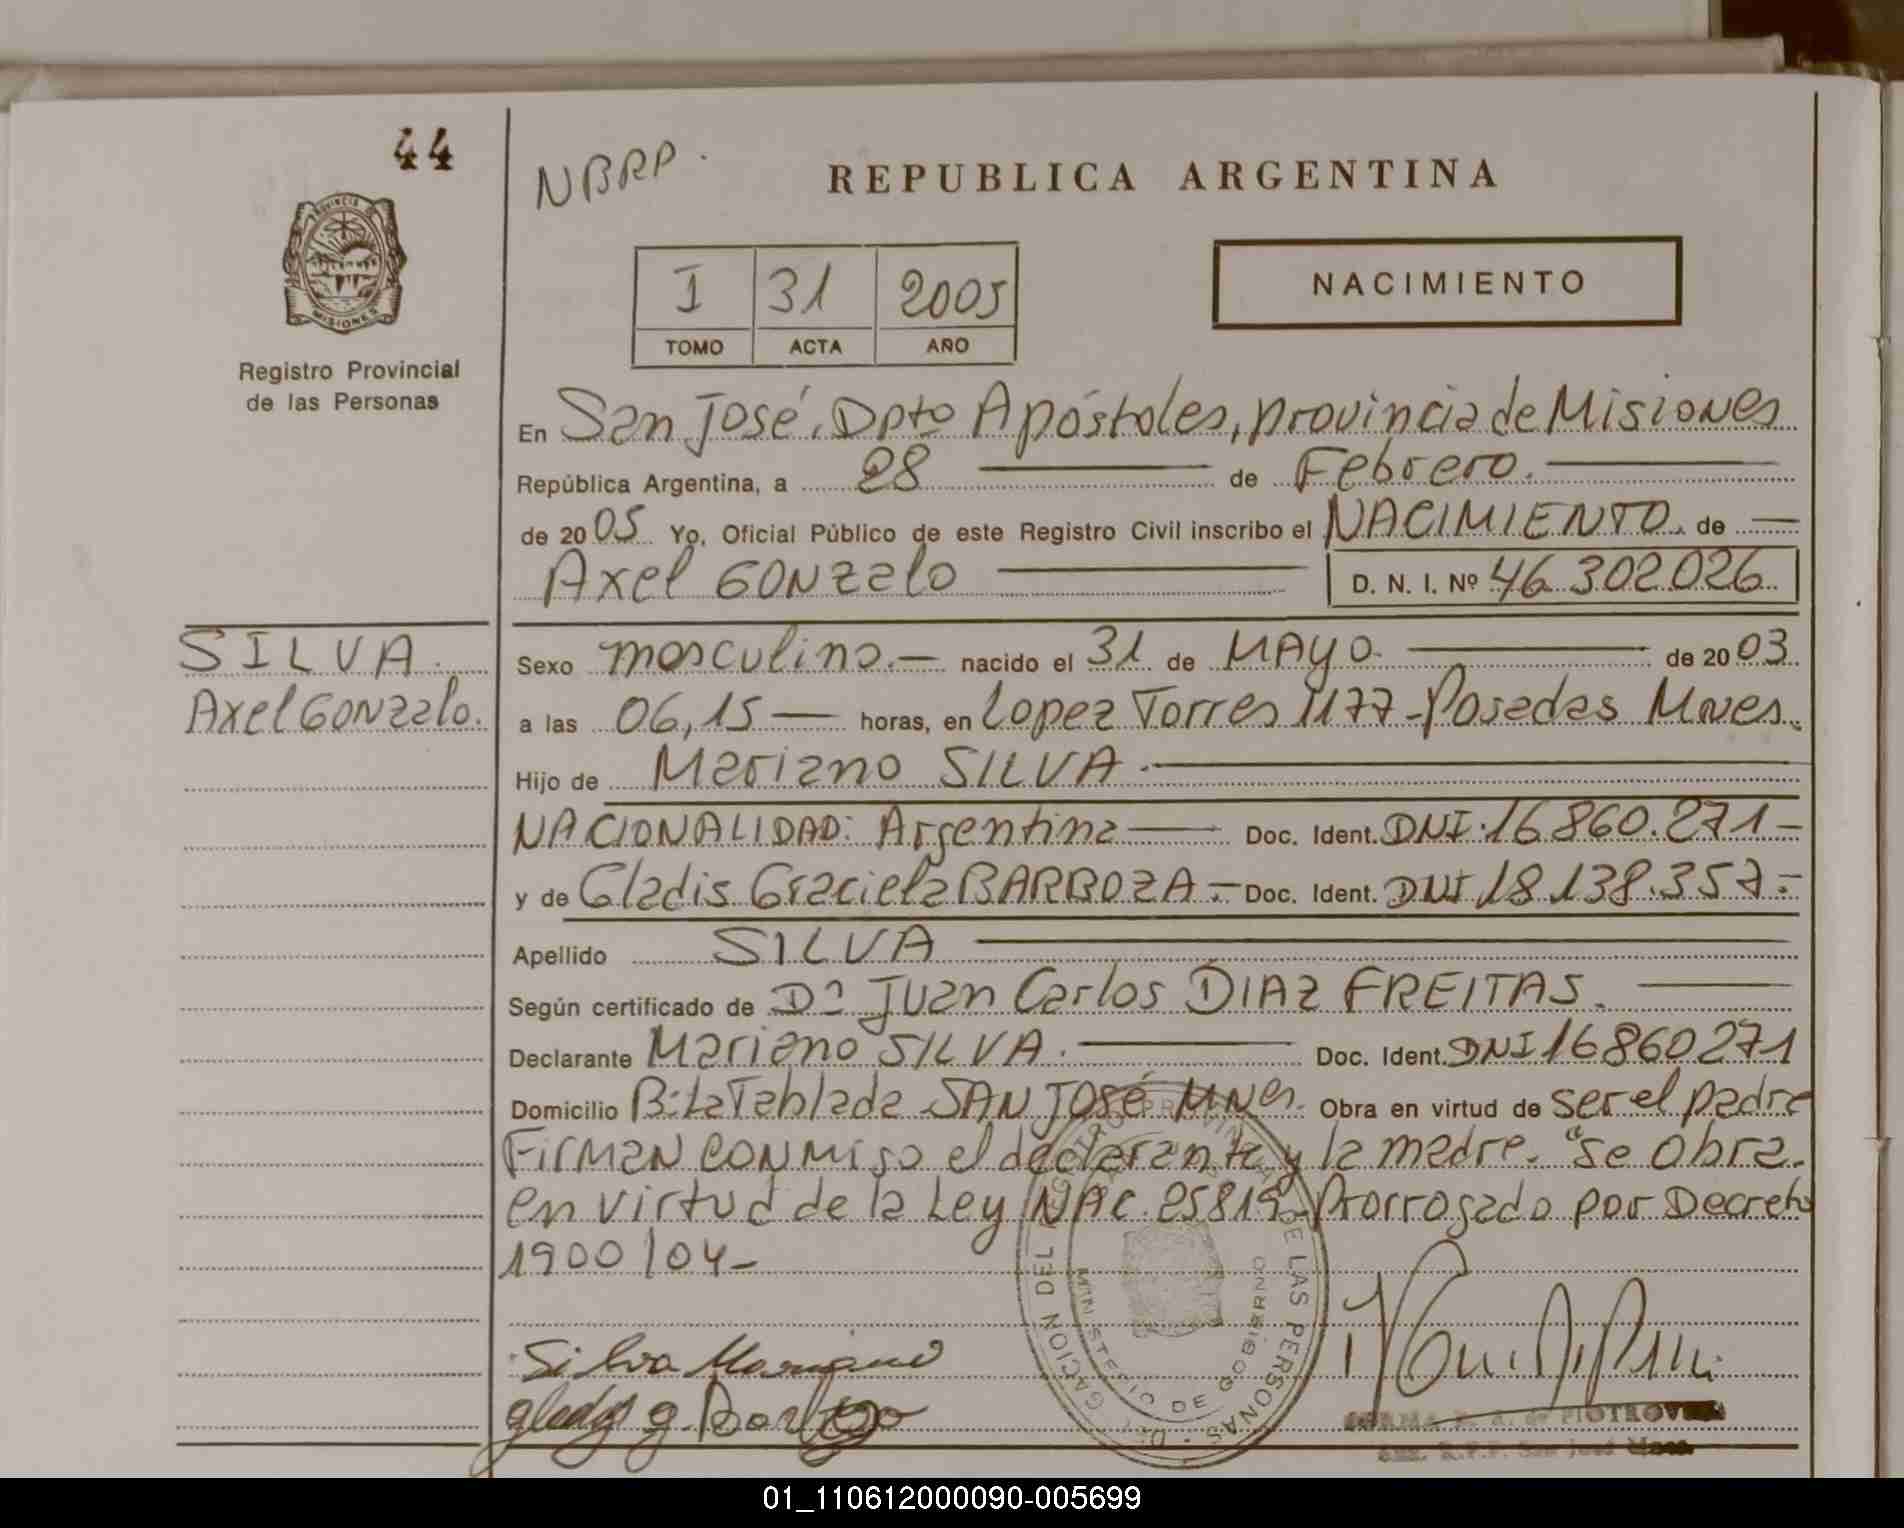 44
NBRP.
REPUBLICA ARGENTINA
PROVINCIA DE
MISIONES
Registro Provincial
de las Personas
I 31 2005
TOMO ACTA AÑO
NACIMIENTO
En San José, Dpto Apóstoles, provincia de Misiones
República Argentina, a 28 de Febrero.
de 2005 Yo, Oficial Público de este Registro Civil inscribo el NACIMIENTO. de
Axel GONzalo D. N. I. Nº 46.302.026
SILVA.
Axel GONzalo.
Sexo masculino.- nacido el 31 de MAYO. de 2003
a las 06,15 horas, en Lopez Torres 1177-Posadas Mnes.
Hijo de Mariano SILVA.
NACIONALIDAD: Argentina Doc. Ident. DNI:16.860.271-
y de Gladis Graciela BARBOZA.- Doc. Ident. DNI 18.138.357.-
Apellido SILVA
Según certificado de Dº Juan Carlos DIAZ FREITAS.
Declarante Mariano SILVA. Doc. Ident. DNI 16860271
Domicilio Bº LaTablada SAN JOSÉ Mnes. Obra en virtud de ser el padre
FirMaN CONMigo el declarante y la madre. "se obra.
en virtud de la Ley NAC. 25819-Prorrogado por Decreto
1900/04-
Silva Mariano
gladys g. Barboza
DELEGACION DEL REGISTRO PROVINCIAL DE LAS PERSONAS
MINISTERIO DE GOBIERNO
de PIOTROVSKI
R.P.P. San José Mnes.
01_110612000090-005699